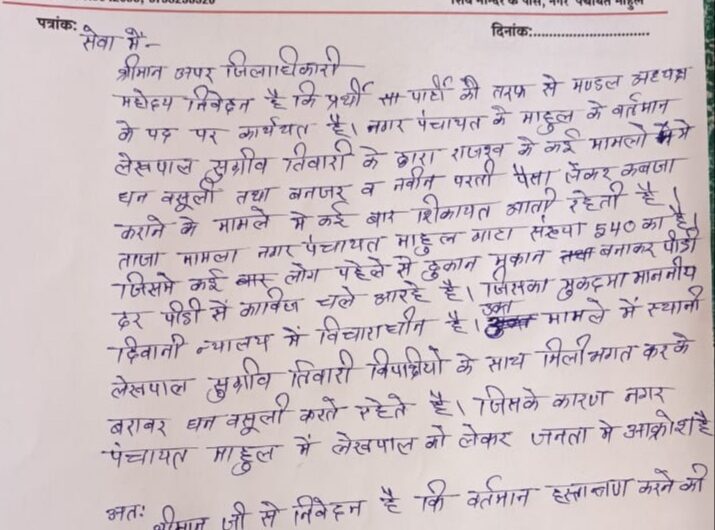 शिव मन्दिर के पास, नगर पंचायत माहुल
पत्रांक: दिनांक:..............................
सेवा मे -
श्रीमान अपर जिलाधिकारी
महोदय निवेदन है कि प्रर्थी पार्टी की तरफ से मण्डल अध्यक्ष
के पद पर कार्यरत है। नगर पंचायत के माहुल के वर्तमान
लेखपाल सुग्रीव तिवारी के द्वारा राजश्व के कई मामलो मे
धन वसूली तथा बनजर व नवीन परती पैसा लेकर कबजा
कराने के मामले मे कई बार शिकायत आती रहेती है।
ताजा मामला नगर पंचायत माहुल गाटा संख्या 540 का है।
जिसमे कई लोग पहेले से दुकान मुकान बनाकर पीडी
दर पीडी से काबिज चले आरहे है। जिसका मुकदमा माननीय
दिवानी न्यालय में विचाराधीन है। उक्त मामले में स्थानी
लेखपाल सुग्रीव तिवारी विपक्षीयो के साथ मिलीभगत कर के
बराबर धन वसूली करते रहेते है। जिसके कारण नगर
पंचायत माहुल में लेखपाल को लेकर जनता मे आक्रोश है
अतः श्रीमान जी से निवेदन है कि वर्तमान करने की